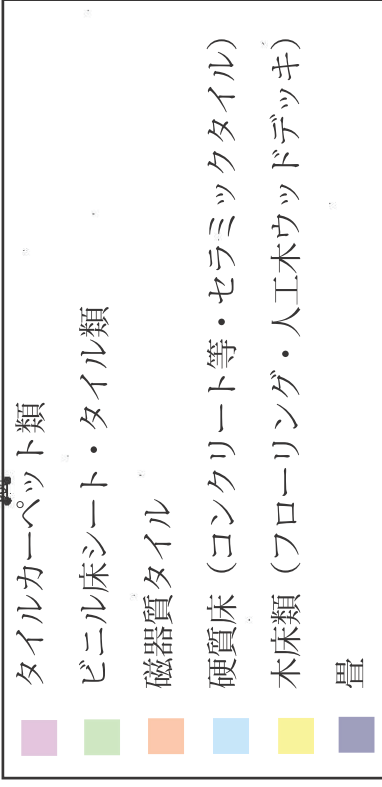 タイルカーペット類
ビニル床シート・タイル類
磁器質タイル
硬質床（コンクリート等・セラミックタイル）
木床類（フローリング・人工木ウッドデッキ）
畳